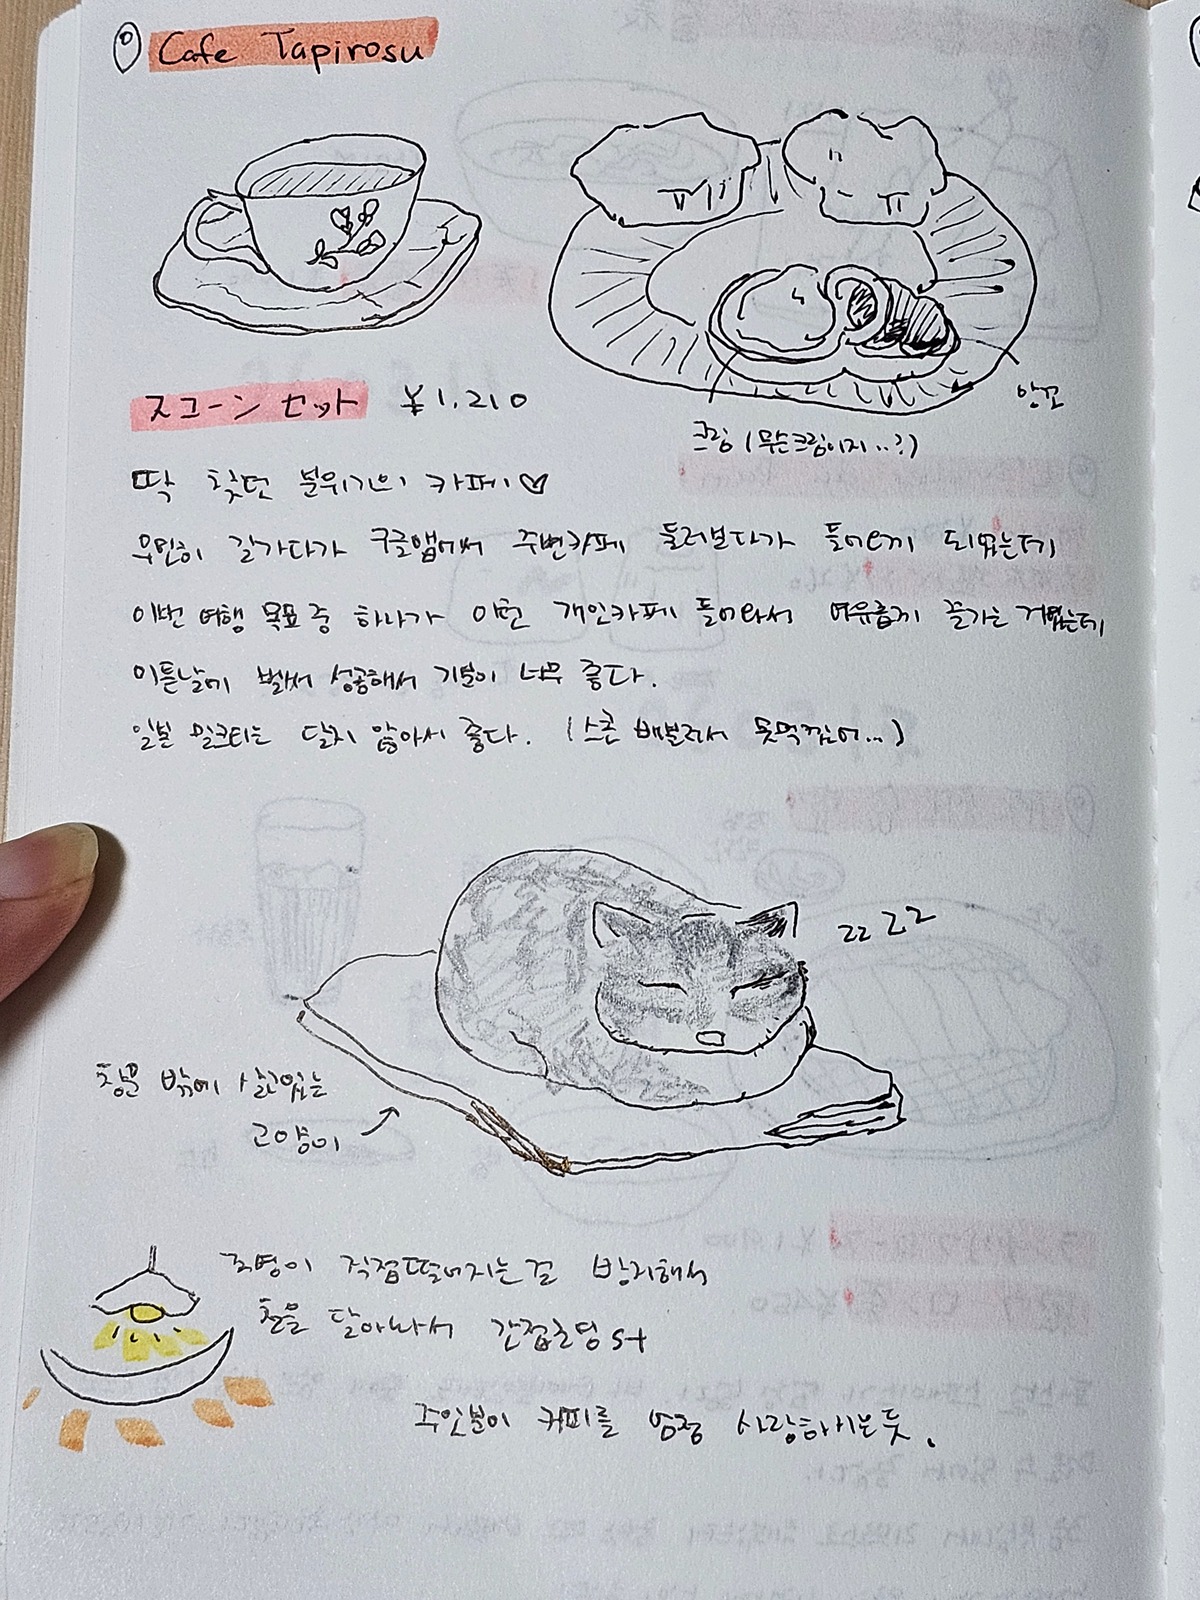 Cafe Tapirosu
앙꼬
크림 (무슨크림이지..?)
スコーン セット ¥1,210
딱 찾던 분위기의 카페♡
우연히 길가다가 구글맵에서 주변카페 둘러보다가 들어오게 되었는데
이번 여행 목표 중 하나가 이런 개인카페 들어와서 여유롭게 즐기는 거였는데
이튿날에 벌써 성공해서 기분이 너무 좋다.
일본 밀크티는 달지 않아서 좋다. (스콘 배불러서 못먹겠어...)
zzZZ
창문 밖에 살고있는
고양이
조명이 직접떨어지는걸 방지해서
천을 달아놔서 간접조명
주인분이 커피를 엄청 사랑하시는듯.